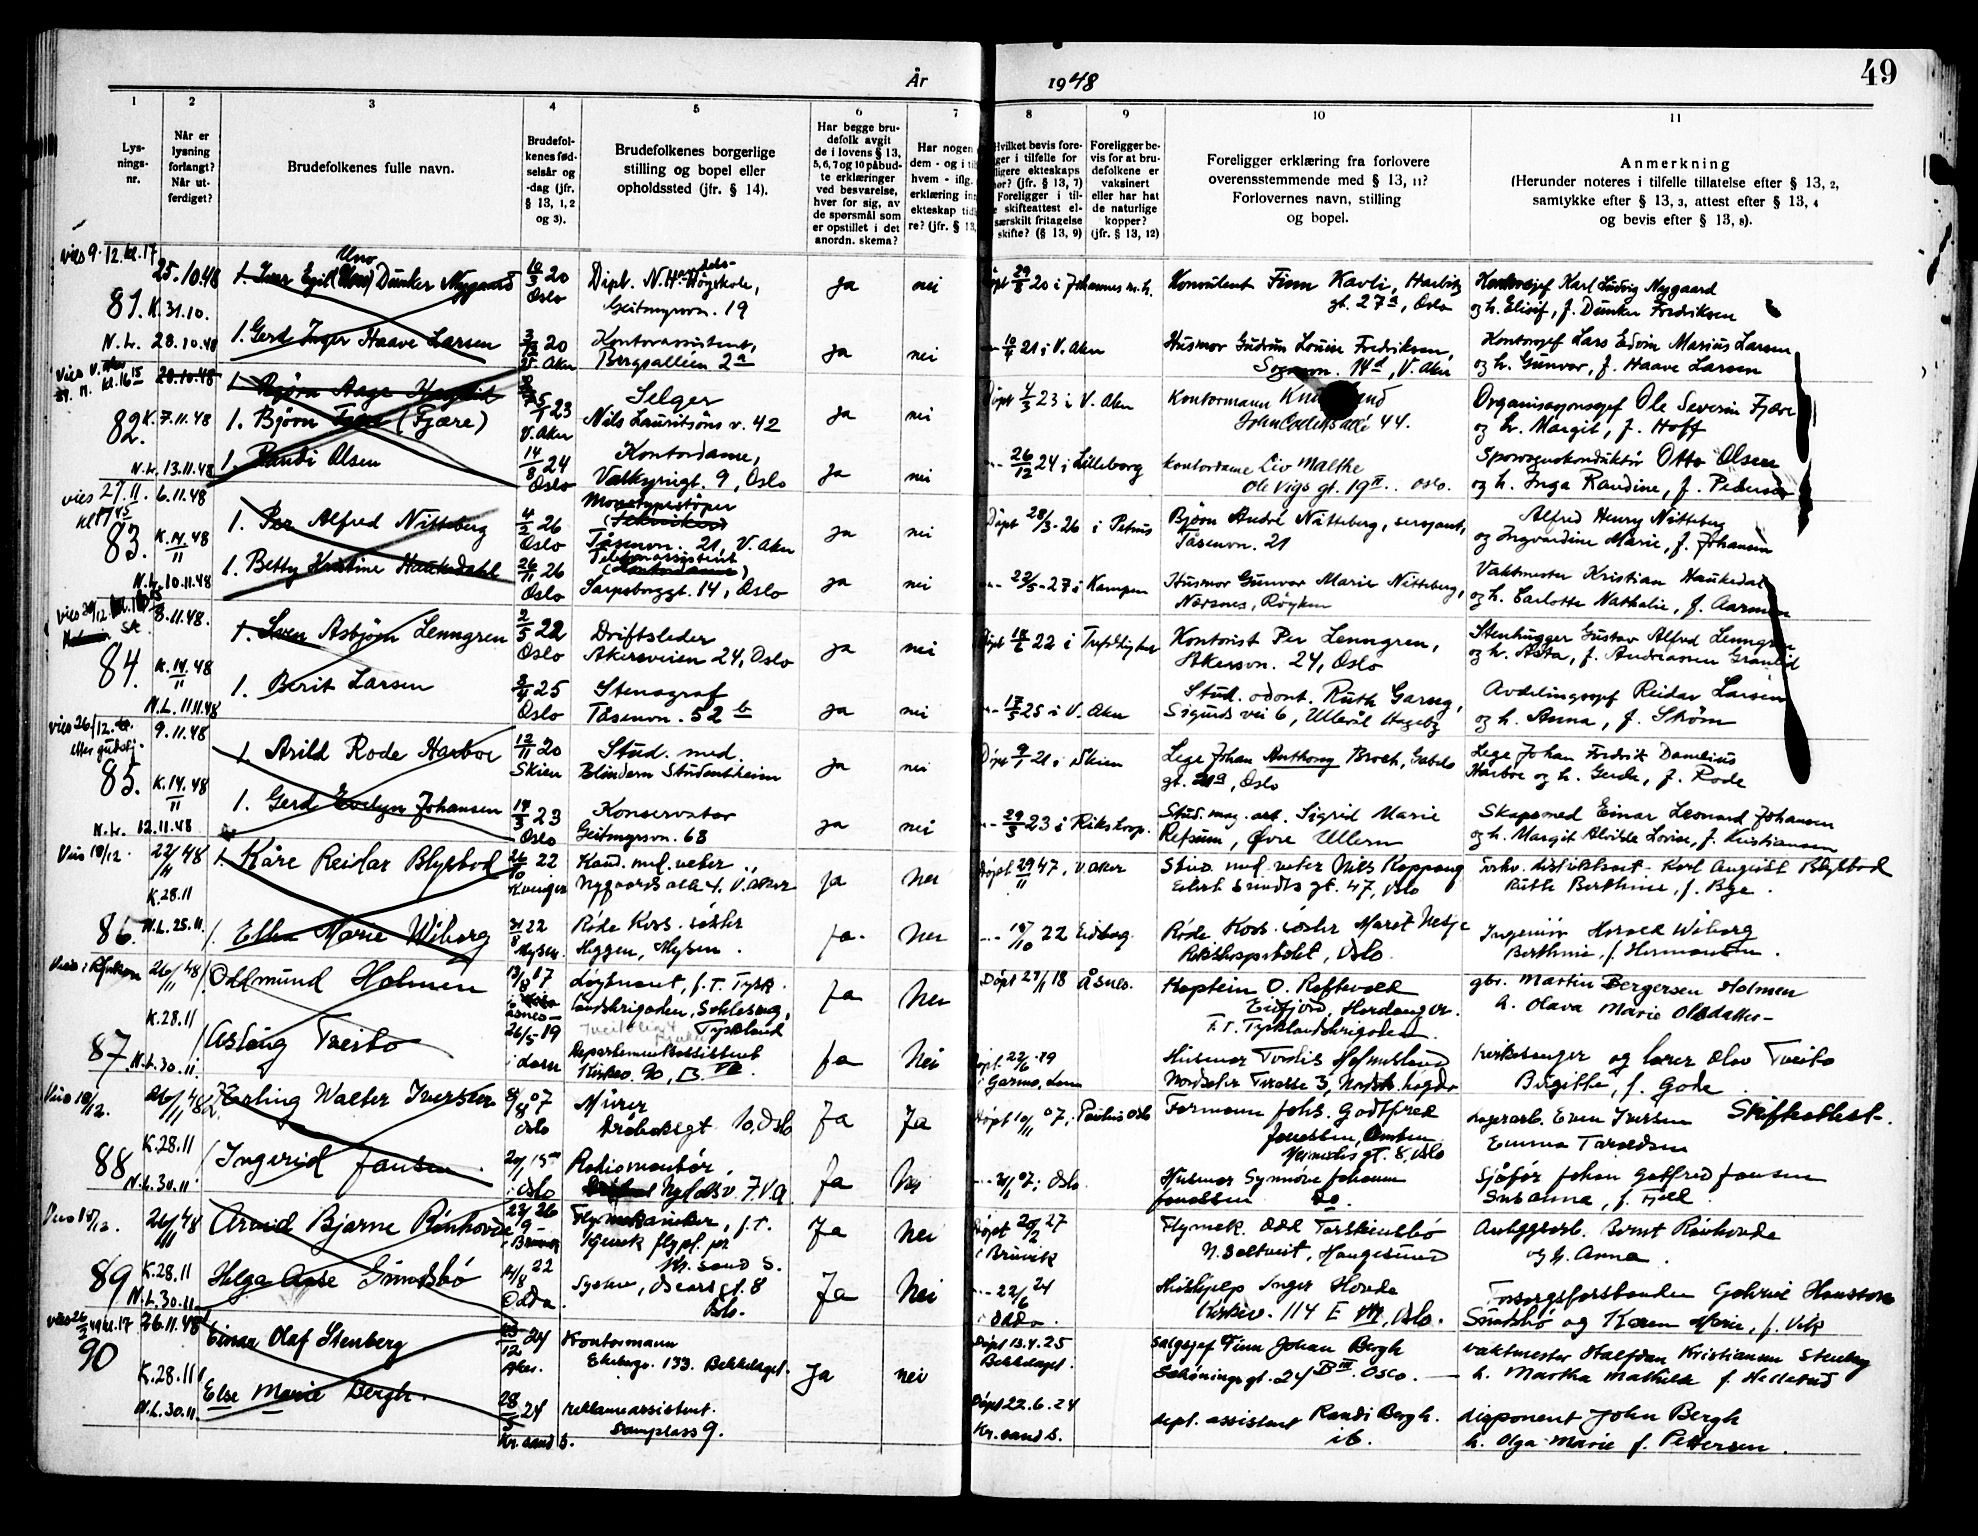 År 1948
49
1
2
3
4
5
6
7
8
9
10
11
Lys-
nings-
nr.
Når er
lysning
forlangt?
Når ut-
ferdiget?
Brudefolkenes fulle navn.
Brudefol-
kenes fød-
selsår og
-dag (jfr.
§ 13, 1, 2
og 3).
Brudefolkenes borgerlige
stilling og bopel eller
opholdssted (jfr. § 14).
Har begge bru-
defolk avgit
de i lovens § 13,
5, 6, 7 og 10 påbud-
te erklæringer
ved besvarelse,
hver for sig, av
de spørsmål som
er opstillet i det
anordn. skema?
Har nogen
dem - og i til
hvem - iflg.
erklæring in
ekteskap tid
re? (jfr. § 13,
Hvilket bevis fore-
ger i tilfelle for
ligere ekteskaps
hør? (jfr. § 13, 7)
Foreligger i til-
e skifteattest el-
særskilt fritagelse
skifte? (§ 13, 9)
Foreligger be-
vis for at bru-
defolkene er
vaksinert
eller har hat
de naturlige
kopper?
(jfr. § 13, 12)
Foreligger erklæring fra forlovere
overensstemmende med § 13, 11?
Forlovernes navn, stilling
og bopel.
Anmerkning
(Herunder noteres i tilfelle tillatelse efter § 13, 2,
samtykke efter § 13, 3, attest efter § 13, 4
og bevis efter § 13, 8).
vies 9.12. kl. 17
25.10.48
81. K. 31.10.
1. Iver Egil (Uno) Dunker Nygaard
Uno
10/3 20
Oslo
Dipl. N. Handels-Høgskole,
Geitmyrsvn. 19
ja
nei
Døpt 29/8 20 i Johannes m.h.
Konsulent Finn Kavli, Harbitz
gt. 27a, Oslo
Kontorsjef Karl Ludvig Nygaard
og h. Elisif, f. Dunker Fredriksen
N.L. 28.10.48
1. Gerd Inger Haave Larsen
20
V. Aker
Kontorassistent,
Bergsalléen 2a
ja
nei
-"- 10/4 21 i V. Aker
Husmor Gudrun Louise Fredriksen,
Sognsvn. 14d, V. Aker
Kontorsjef Lars Edvin Marius Larsen
og h. Gunvor, f. Haave Larsen
28.10.48
82. K. 7.11.48
1. Bjørn Fjære (Fjære)
5/1 23
V. Aker
Selger
Nils Lauritsøns v. 42
ja
nei
Døpt 4/3 23 i V. Aker
Kontormann
44.
Organisasjonssjef Ole Severin Fjære
og h. Margit, f. Hoff
N.L. 13.11.48
1. Randi Olsen
14/8 24
Oslo
Kontordame,
Valkyriegt. 9, Oslo
ja
nei
-"- 26/12 24 i Lilleborg
Kontordame Liv Malthe
Ole Vigs gt. 19 II Oslo.
Sporvognskonduktør Otto Olsen
og h. Inga Randine, f. Pedersen
vies 27.11. 6.11.48
83. K. 14/11 48
1. Per Alfred Nitteberg
4/2 26
Oslo
Monotypestøper
(Tekniker)
Tåsenvn. 21, V. Aker
ja
nei
Døpt 28/3-26 i Petrus
Bjørn André Nitteberg, sersjant,
Tåsenvn. 21
Alfred Henry Nitteberg
og Ingvardine Marie, f. Johansen
N.L. 10.11.48
1. Betty Kristine Haukedahl
26/11 26
Oslo
Telefonassistent
(Kontordame)
Sarpsborggt. 14, Oslo
ja
nei
-"- 22/5-27 i Kampen
Husmor Gunvor Marie Nitteberg,
Nærsnes, Røyken
Vaktmester Kristian Haukedal
og h. Carlotte Nathalie, f. Aarmen
8.11.48.
84. K. 14/11 48
1. Sven Asbjørn Lenngren
2/5 22
Oslo
Driftsleder
Akersveien 24, Oslo
ja
nei
Døpt 22 i Trefoldighet
Kontorist Per Lenngren,
Akersvn. 24, Oslo
Stenhugger Gustav Alfred Lenngren
og h. Asta, f. Andreassen Granlid
N.L. 11.11.48
1. Berit Larsen
2/4 25
Oslo
Stenograf
Tåsenvn. 52 b
ja
nei
-"- 17/5 25 i V. Aker
Stud. odont. Ruth Garseg,
Sigurds vei 6, Ullevål Hageby
Avdelingssjef Reidar Larsen
og h. Anna, f. Strøm
vies 26/12. kl.
efter gudstj.
9.11.48
85. K. 14.48
11
1. Arild Rode Harboe
12/11 20
Skien
Stud. med.
Blindern Studentheim
ja
nei
Døpt 9/1 21 i Skien
Lege Johan Anthony Broch, Gabels
gt. Oslo
Lege Johan Fredrik Damlius
Harboe og h. Gerda, f. Rode
N.L. 12.11.48
1. Gerd Evelyn Johansen
14/3 23
Oslo
Konservator
Geitmyrsvn. 68
ja
nei
-"- 29/3 23 i Rikshosp.
Stud. mag. art. Sigrid Marie
Refsum, Øvre Ullern
Skapsmed Einar Leonard Johansen
og h. Margit Alvilde Lovise, f. Kristiansen
Vies 18/12. 22/11 48
K. 28.11
1. Kåre Reidar Blylbod
26/10 22
Kvinger
Kand. med. veter.
Nygaards alle 4, V. Aker
ja
Nei
Døpt 29/11 47, V. Aker
Stud. med. veter Nils Koppang
Eilert Sundts gt. 47, Oslo
Karl August Blylbod
Ruth Berthine, f. Bye.
86. N.L. 25.11.
1. Ella Marie Wiborg
22
Mysen.
Røde Kors. søster
Heggen, Mysen.
ja.
Nei
-"- 22 Eidsberg.
Røde Kors. søster Marit Netje
Rikshospitalet, Oslo.
Ingeniør Harald Wiborg
Berthine, f. Hermansen.
Vies i Rjukan 26/11 48
K. 28.11
1. Oddmund Holmen
13/8 17
Åsnes
Løytnant, f.T. Tysk.
landsbrigaden, Schleswig,
Tyskland
ja
Nei
Døpt 27/1 18 Åsnes.
Kaptein O. Reftvedt
Eidfjord, Hardanger.
F.T. Tysklandsbrigaden
gbr. Martin Bergersen Holmen
h. Olava Marie Olsdatter
87 N.L. 30.11
1. Aslaug Tveito
26/5-19
i Lom
Departementsassistent
Kirkev. 90, B. VII
ja
Nei
Døpt 22/6 19
i Garmo, Lom
Husmor Tordis Holmslund
Nordseter Terasse 3, Nordstr. høgda
Kirkesanger og lærer Olav Tveito
Birgitte, f. Gode.
Vies 18/12. 26/11 48
K. 28.11
2. Erling Walter Iversen
8/8 07
Oslo
Murer
Drøbaksgt 10, Oslo
Ja
Ja
Døpt 10/11 07 i Paulus Oslo
Formann Johs. Godtfred
8, Oslo
Lagerarb. Even Iversen
Skifteattest.
Emma Taraldsen
88 N.L. 30.11
1. Ingerid Jansen.
Oslo
Radiomontør.
Ja
Nei
07 i Oslo.
Husmor Synnøve Johanne
do.
Sjåfør Johan Gotfred Jansen
Susanna, f. Fjell.
Vies 18/12. 26/11 48
Arvid Bjarne Rønhovde
26
Flymekaniker, f.T.
Kjevik flypl. pr
Kr. sand S.
Ja
Nei
Døpt 20/2 27
i Bruvik
Flymek. Odd Torsteinsbø
N. Saltveit, Haugesund
Anleggsarb. Bernt Rønhovde
og h. Anna.
89 K. 28.11
N.L. 30.11
Helga Aase Sundsbø
14/8 22
Odda.
Syerske, Oscars gt. 8
Oslo.
Ja
Nei
-"- 22/6 24
i Odda.
Hushjelp Inger Hovde
Kirkev. 114 E III, Oslo.
Forsorgsforstander Gabriel Haustors
Sundsbø og Karen Marie, f. Vik
kl. 17 26.11.48
90
K. 28.11
Einar Olaf Stenberg
12 24
Aker.
Kontormann
Ekebergv. 133. Bekkelaget.
Ja
nei
Døpt 13.4.25
Bekkelaget.
Salgssjef Finn Johan Bergh
Schøningsgt. 24 B III. Oslo.
Vaktmester Halfdan Kristiansen Stenberg
h. Martha Mathilde f. Hellerud
N.L. 30.11.
Else Marie Bergh.
28/5 24
Kr. sand S.
reklameassistent.
Damplass 9.
Døpt 22.6.24
Kr. sand S.
dept. assistent Randi Bergh.
ib.
disponent John Bergh
h. Olga Marie f. Pettersen.